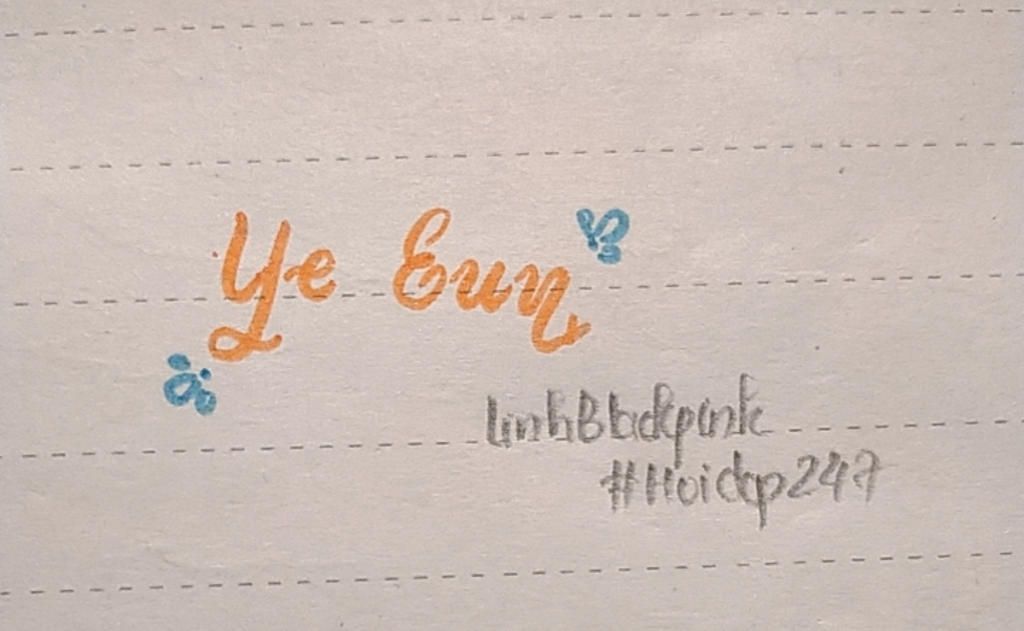 Ye Eun
LinhBlackpink
#Hoidap247